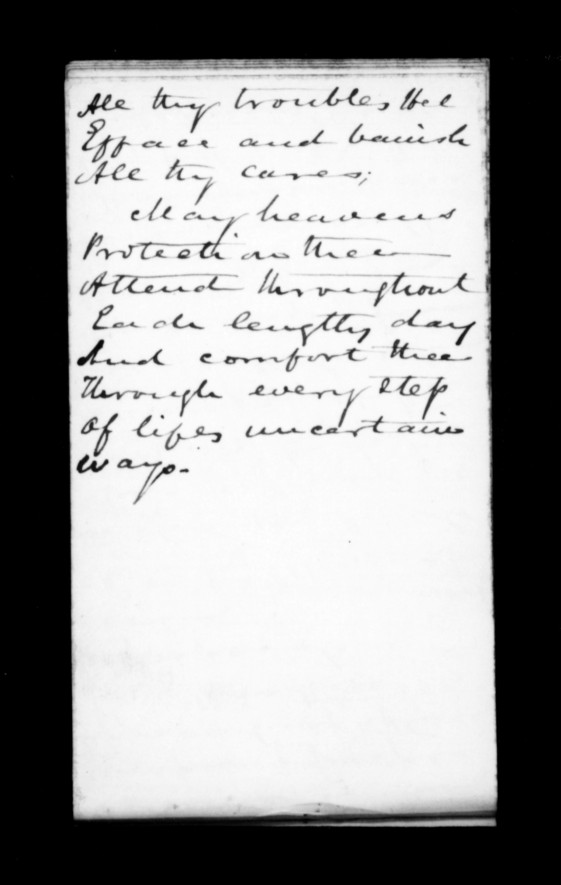 All thy troubles Hel
Efface and banish
All thy cares;
May heavens
Protection thee
Attend throughout
Each lengthy day
And comfort thee
Through every step
Of lifes uncertain
ways.